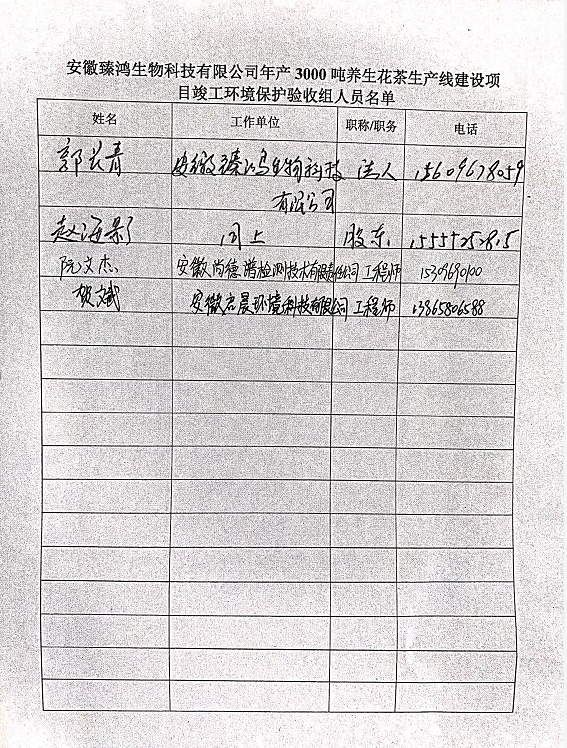 安徽臻鸿生物科技有限公司年产 3000 吨养生花茶生产线建设项
目竣工环境保护验收组人员名单
姓名 工作单位 职称/职务 电话
郭长青 安徽臻鸿生物科技 法人 15609678059
有限公司
赵海影 同上 股东
阮文杰 安徽尚德谱检测技术有限责任公司 工程师 15309690100
贺斌 安徽启晨环境科技有限公司 工程师 13865806588